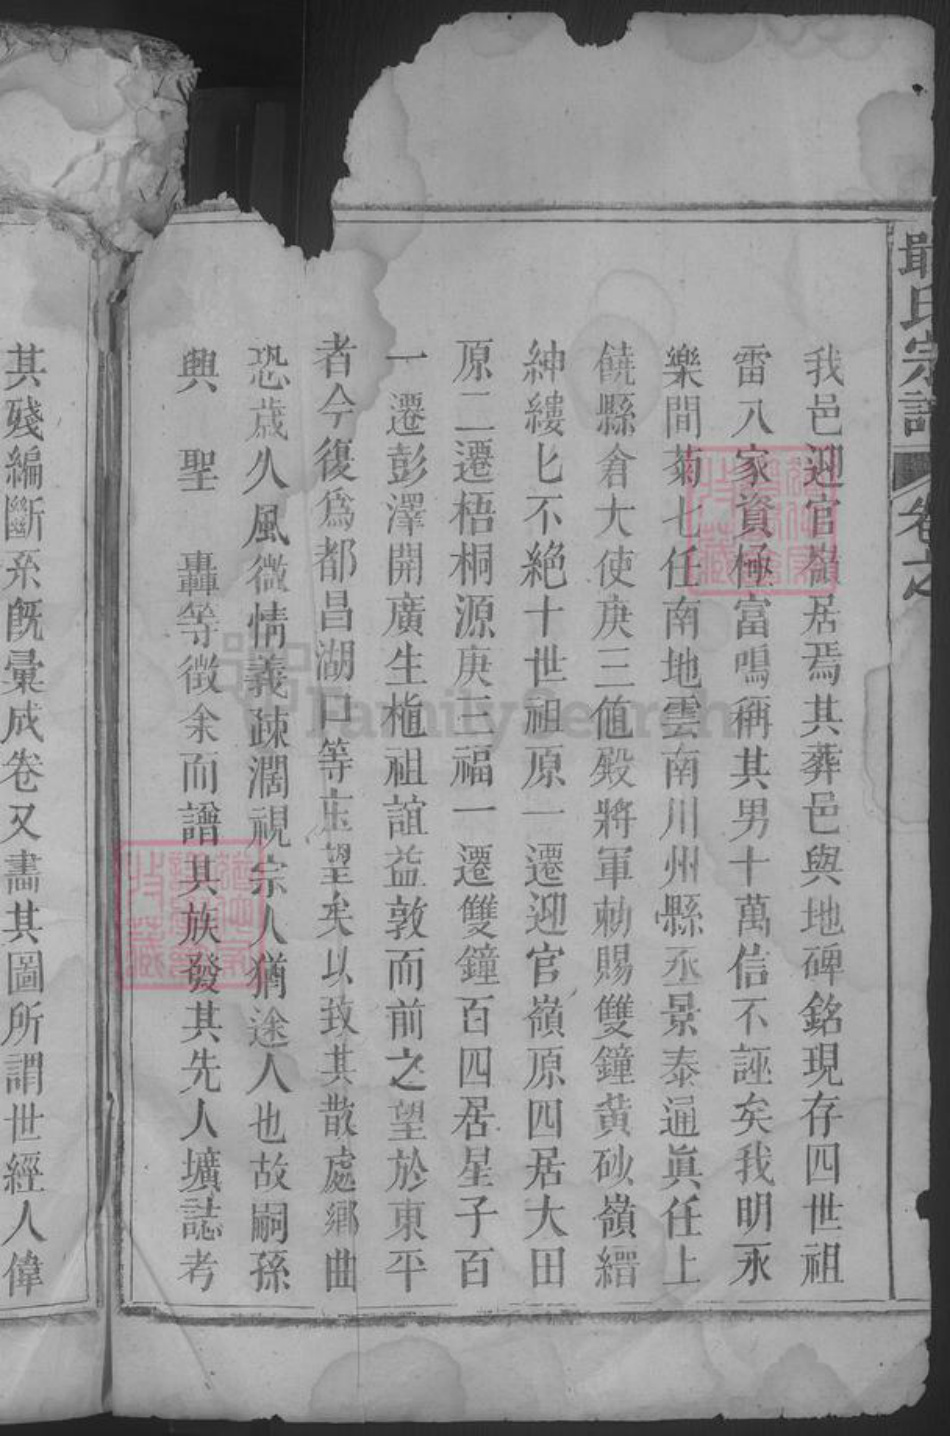 氏宗譜 卷之
我邑迎官嶺居焉其葬邑與地碑銘現存四世祖
雷八家資極富鳴稱其男十萬信不誣矣我明永
樂間菊七任南地雲南川州縣丞景泰通眞任上
饒縣倉大使庚三值殿將軍勅賜雙鐘黃砂嶺縉
紳縷匕不絕十世祖原一遷迎官嶺原四居大田
原二遷梧桐源庚三福一遷雙鐘百四居星子百
一遷彭澤開廣生植祖誼益敦而前之望於東平
者今復爲都昌湖口等望矣以致其散處鄉曲
恐歲久風微情義疎濶視宗人猶途人也故嗣孫
興 聖 轟等徵余而譜其族發其先人壙誌考
其殘編斷系旣彙成卷又畵其圖所謂世經人偉
FamilySearch